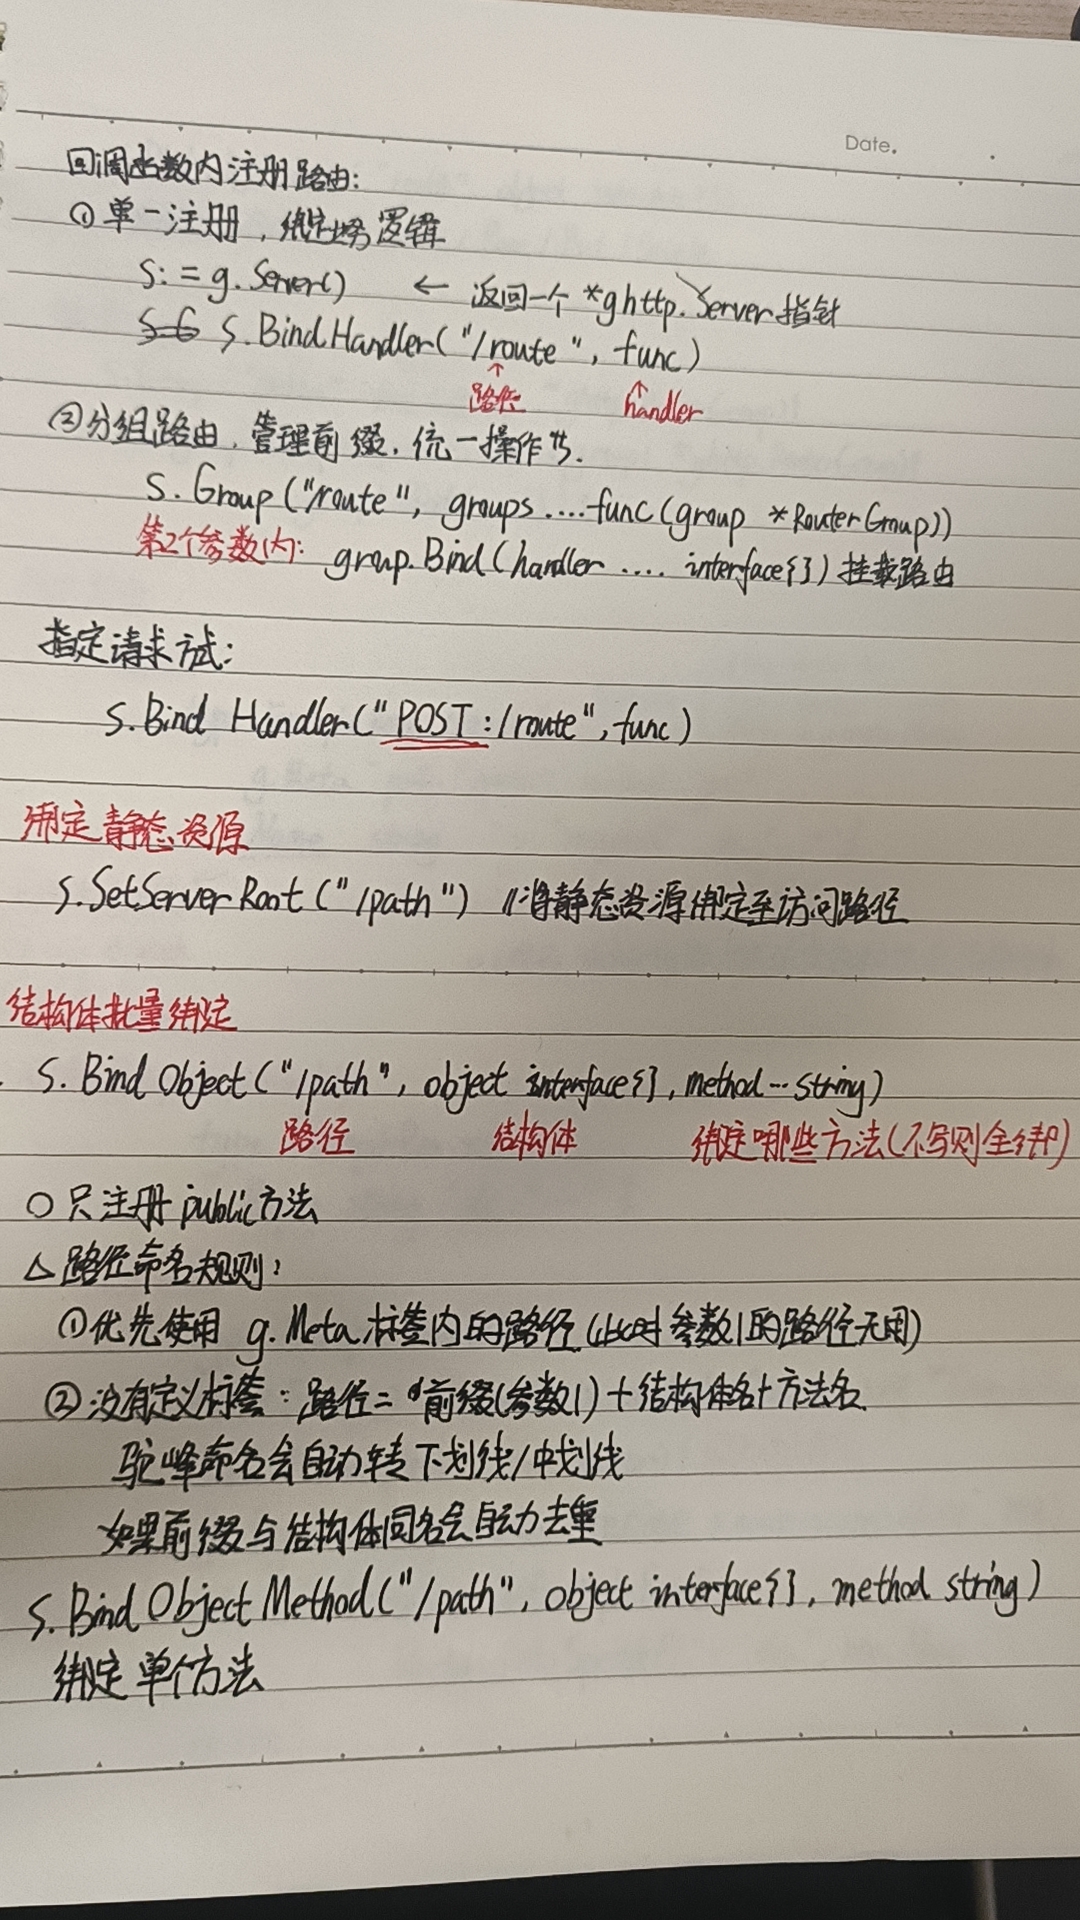 Date.
回调函数内注册路由:
①单一注册,绑定业务逻辑
S:=g.Server() ← 返回一个 *ghttp.Server指针
S.BindHandler("/route", func)
路径 handler
②分组路由,管理前缀,统一操作等.
S.Group("/route", groups....func(group *RouterGroup))
第2个参数内: group.Bind(handler .... interface{}) 挂载路由
指定请求方式:
S.Bind Handler("POST:/route", func)
绑定静态资源
S.SetServerRoot("/path") //将静态资源绑定至访问路径
结构体批量绑定
S.Bind Object("/path", object interface{}, method...string)
路径 结构体 绑定哪些方法(不写则全绑)
○只注册public方法
△路径命名规则:
①优先使用 g.Meta标签内的路径(此时参数1的路径无用)
②没有定义标签:路径=前缀(参数1)+结构体名+方法名
驼峰命名会自动转下划线/中划线
如果前缀与结构体同名会自动去重
S.Bind Object Method("/path", object interface{}, method string)
绑定单个方法